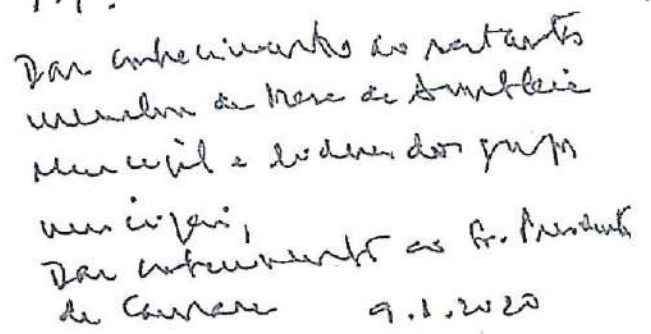 Dar conhecimento aos restantes
membros da Mesa da Assembleia
Municipal e líderes dos grupos
municipais,
Dar conhecimento ao Sr. Presidente
da Câmara 9.1.2020